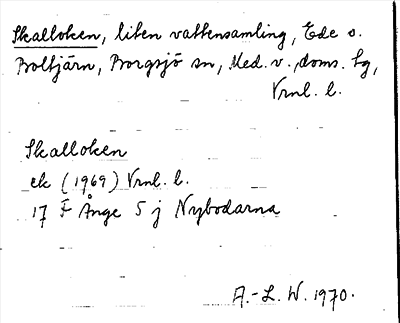 Skalloken, liten vattensamling, Ede o.
Boltjärn, Borgsjö sn, Med. v. doms. tg,
Vrnl. l.
Skalloken
ek (1969) Vrnl. l.
17 F Ånge 5 j Nybodarna
A.-L. W. 1970.